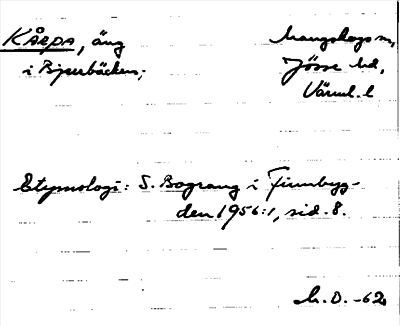 KÅRPA, äng
i Bjurbäcken;
Mangskogs sn,
Jösse hd,
Värml. l
Etymologi: S. Bograng i Finnbyg-
den 1956:1, sid. 8.
-62